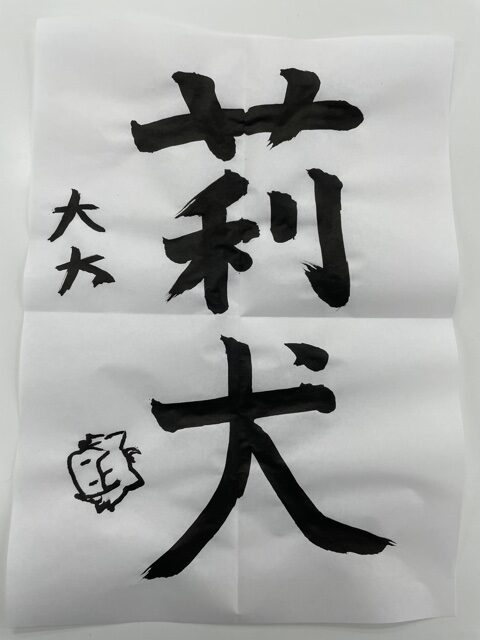 莉犬
大大